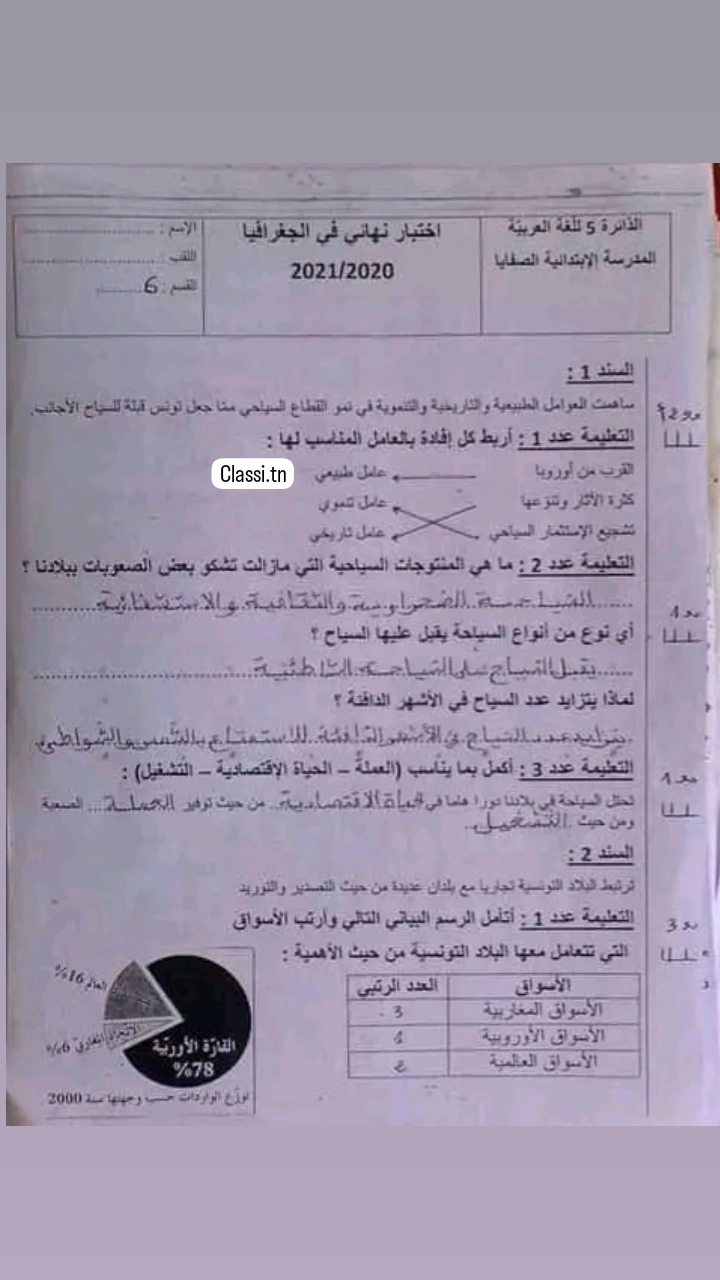 الدائرة 5 للغة العربية
المدرسة الإبتدائية الصفايا
اختبار نهائي في الجغرافيا
2021/2020
الاسم : ..........
اللقب : ..........
القسم : 6
السند 1 :
ساهمت العوامل الطبيعية والتاريخية والتنموية في نمو القطاع السياحي ممّا جعل تونس قبلة للسياح الأجانب.
التعليمة عدد 1 : أربط كل إفادة بالعامل المناسب لها :
Classi.tn
القرب من أوروبا عامل طبيعي
كثرة الأثار وتنوّعها عامل تنموي
تشجيع الإستثمار السياحي عامل تاريخي
التعليمة عدد 2 : ما هي المنتوجات السياحية التي مازالت تشكو بعض الصعوبات ببلادنا ؟
السياحة الصحراوية والثقافية والاستشفائية
أي نوع من أنواع السياحة يقبل عليها السياح ؟
يقبل السياح على السياحة الشاطئية
لماذا يتزايد عدد السياح في الأشهر الدافئة ؟
يتزايد عدد السياح في الأشهر الدافئة للاستمتاع بالشمس والشواطئ
التعليمة عدد 3 : أكمل بما يناسب (العملة – الحياة الإقتصادية – التشغيل) :
تحتل السياحة في بلادنا دورا هاما في الحياة الاقتصادية من حيث توفير العملة الصعبة
ومن حيث التشغيل
السند 2 :
ترتبط البلاد التونسية تجاريا مع بلدان عديدة من حيث التصدير والتوريد
التعليمة عدد 1 : أتأمل الرسم البياني التالي وأرتب الأسواق
التي تتعامل معها البلاد التونسية من حيث الأهمية :
الأسواق العدد الرتبي
الأسواق المغاربية 3
الأسواق الأوروبية 1
الأسواق العالمية 2
العالم 16%
الاتحاد المغاربي 6%
القارّة الأوربيّة
78%
توزّع الواردات حسب وجهتها سنة 2000